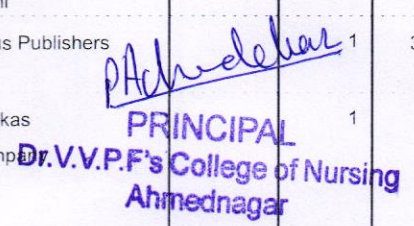 us Publishers 1 3
kas 1
PRINCIPAL
Dr.V.V.P.F's College of Nursing
Ahmednagar